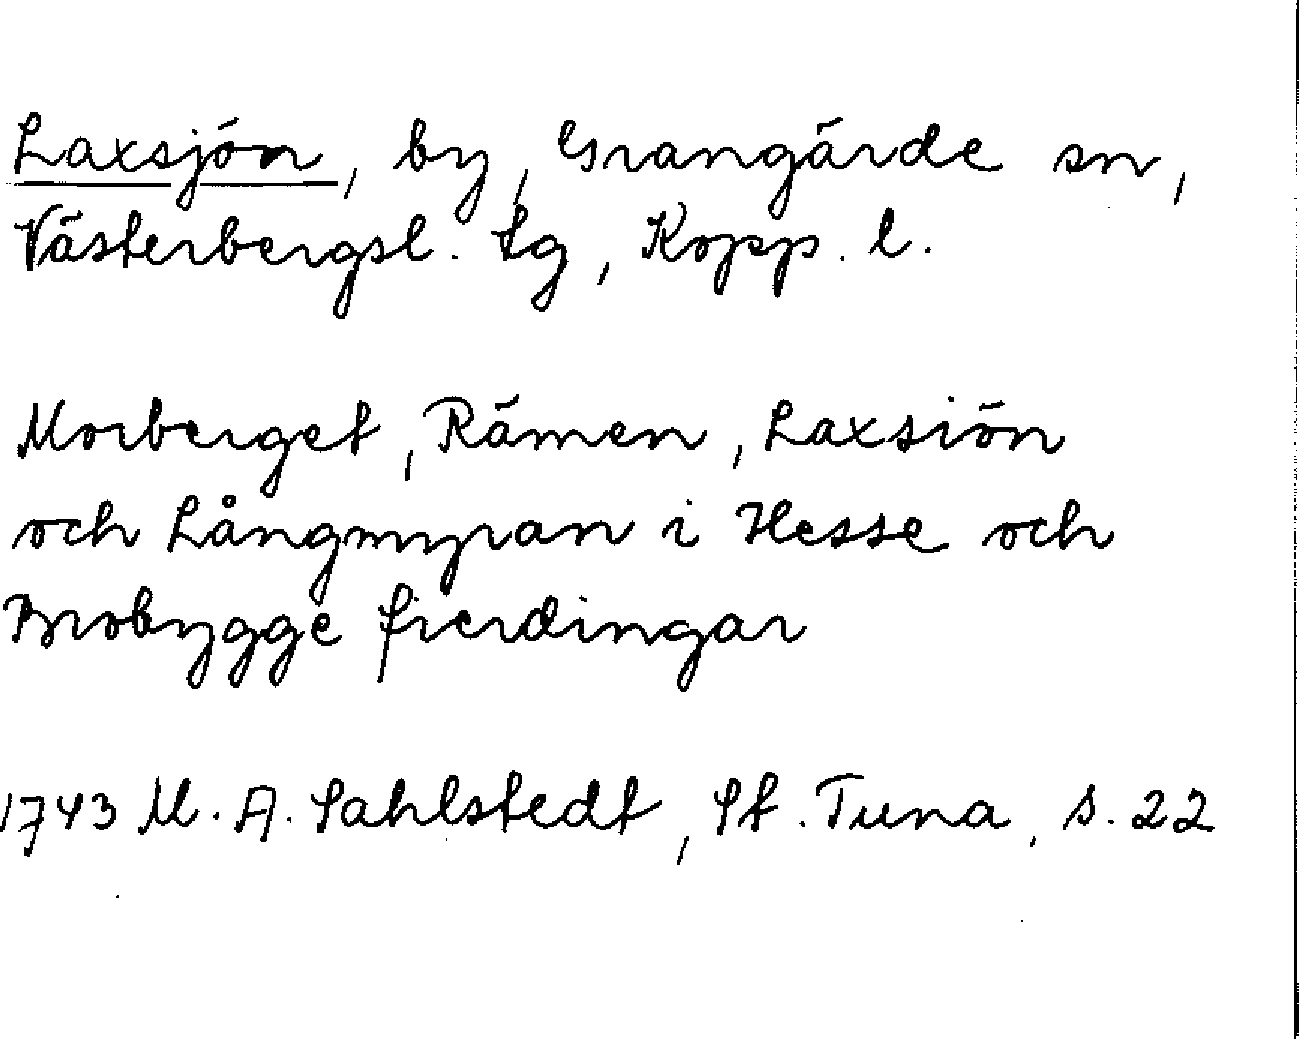 Laxsjön, by, Grangärde sn,
Västerbergsl. tg, Kopp. l.
Morberget, Rämen, Laxsiön
och Långmyran i Hesse och
Brobygge fierdingar
1743 M. A. Sahlstedt, St. Tuna, s. 22